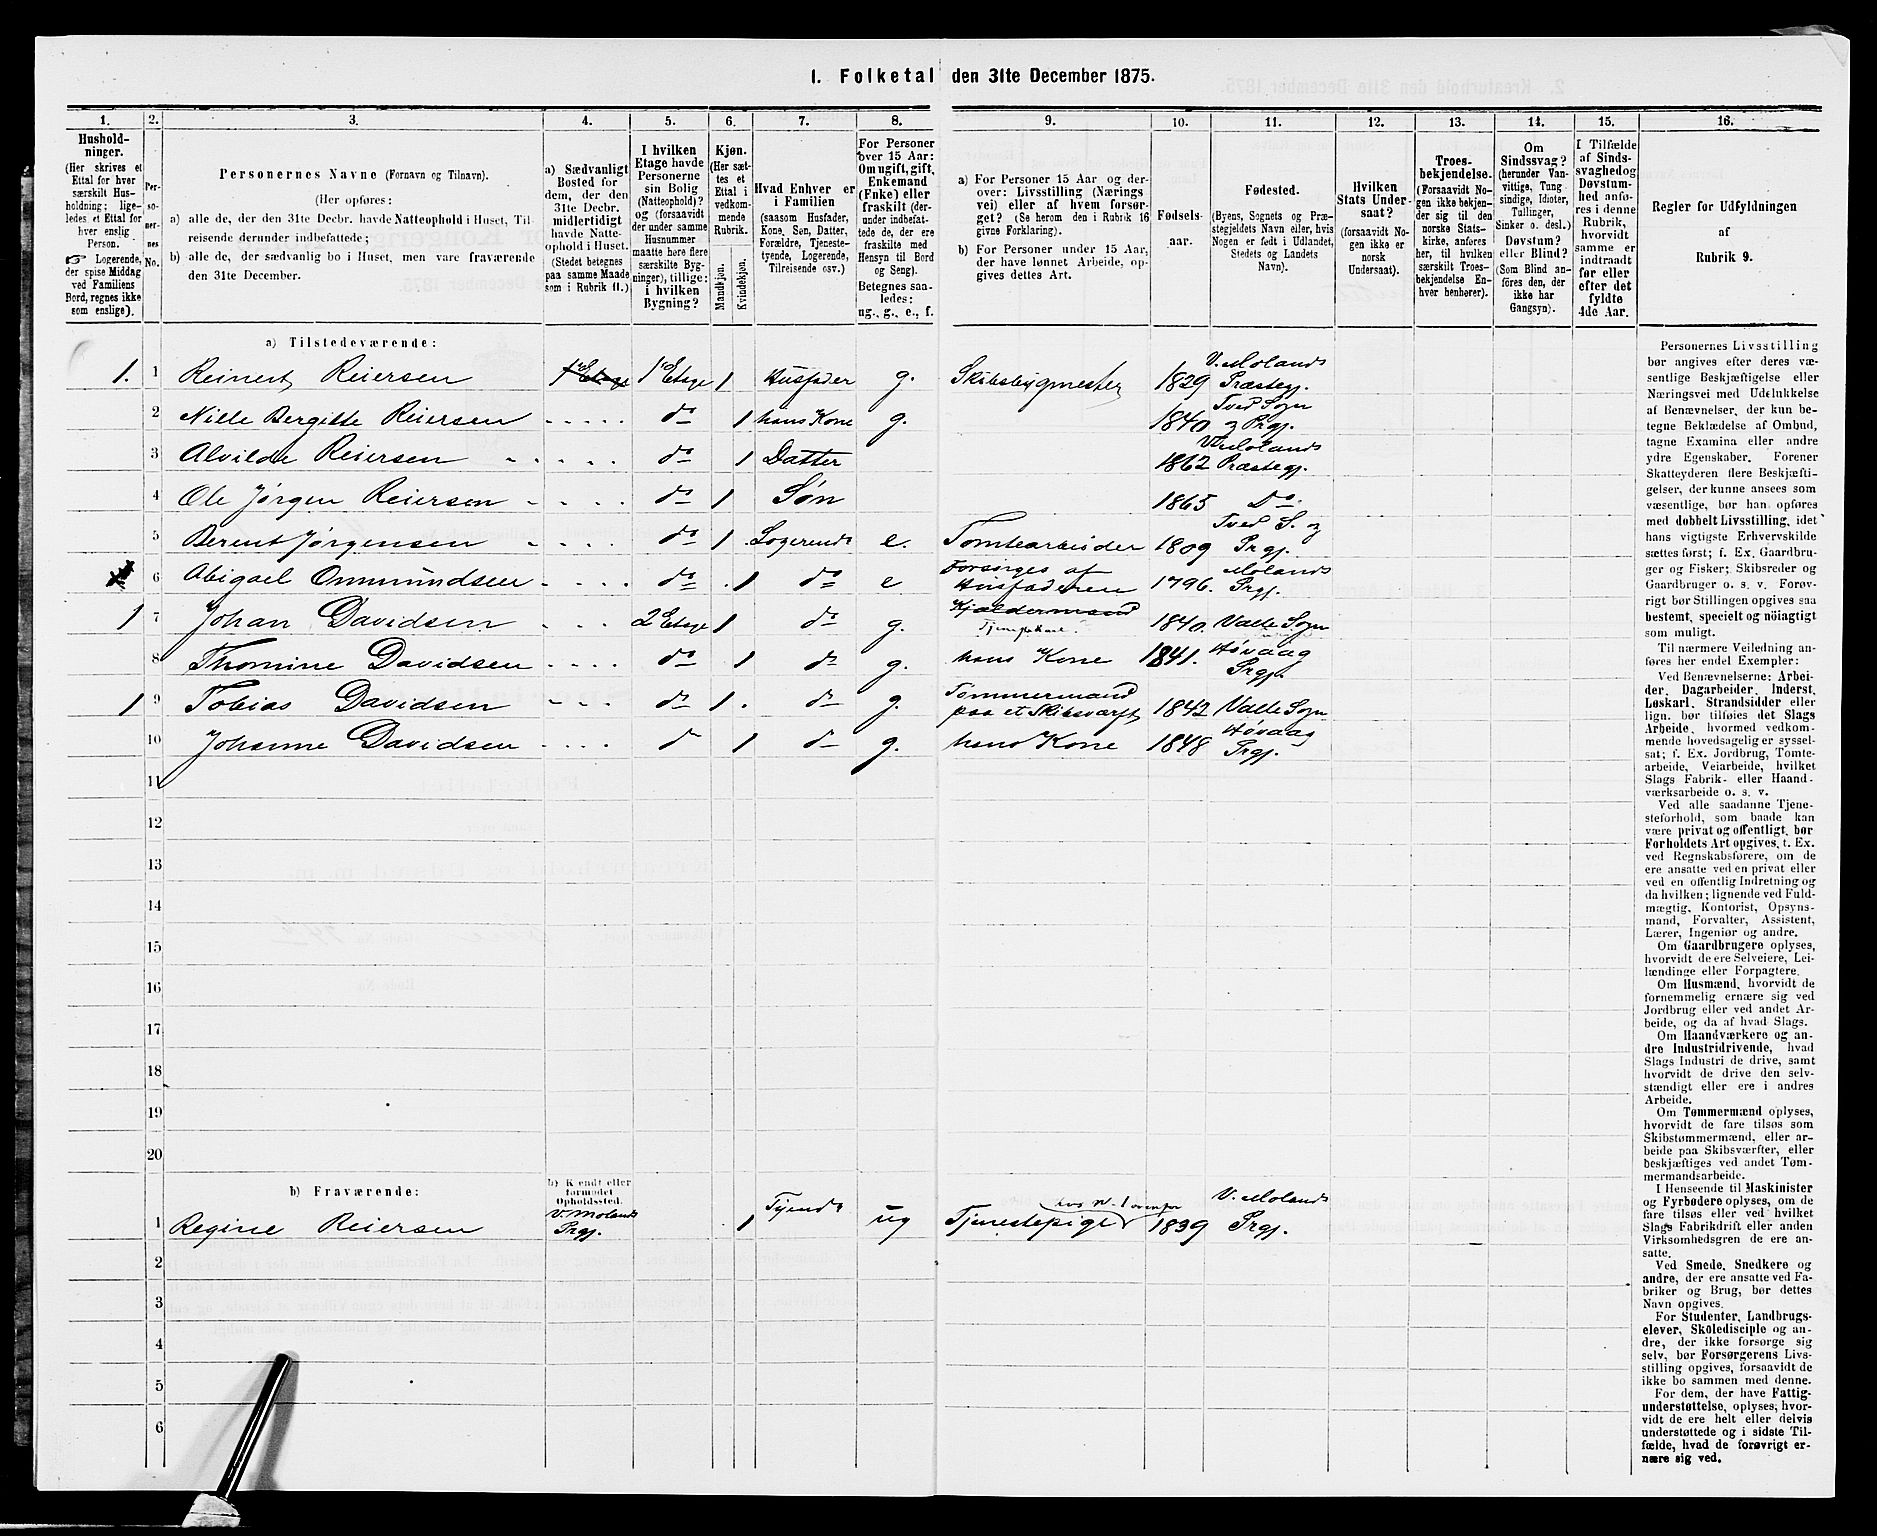 1. Folketal den 31te December 1875.
1.
Hushold-
ninger.
(Her skrives et
Ettal for hver
særskilt Hus-
holdning; lige-
ledes et Ettal for
hver enslig
Person.
☞ Logerende,
der spise Middag
ved Familiens
Bord, regnes ikke
som enslige).
2.
Per-
so-
ner-
nes
No.
3.
Personernes Navne (Fornavn og Tilnavn).
(Her opføres:
a) alle de, der den 31te Decbr. havde Natteophold i Huset, Til-
reisende derunder indbefattede;
b) alle de, der sædvanlig bo i Huset, men vare fraværende
den 31te December.
4.
a) Sædvanligt
Bosted for
dem, der den
31te Decbr.
midlertidigt
havde Natte-
ophold i Huset.
(Stedet betegnes
paa samme Maade
som i Rubrik 11.)
5.
I hvilken
Etage havde
Personerne
sin Bolig
(Natteophold)?
og (forsaavidt
der under samme
Husnummer
maatte høre flere
særskilte Byg-
ninger), tillige:
i hvilken
Bygning?
6.
Kjøn.
(Her sæt-
tes et
Ettal i
vedkom-
mende
Rubrik.
Mandkjøn.
Kvindekjøn.
7.
Hvad Enhver er
i Familien
(saasom Husfader,
Kone, Søn, Datter,
Forældre, Tjeneste-
tyende, Logerende,
Tilreisende osv.)
8.
For Personer
over 15 Aar:
Om ugift, gift,
Enkemand
(Enke) eller
fraskilt (der-
under indbefat-
tede de, der ere
fraskilte med
Hensyn til Bord
og Seng).
Betegnes saa-
ledes:
ug., g., e., f.
9.
a) For Personer 15 Aar og der-
over: Livsstilling (Nærings
vei) eller af hvem forsør-
get? (Se herom den i Rubrik 16
givne Forklaring).
b) For Personer under 15 Aar,
der have lønnet Arbeide, op-
gives dettes Art.
10.
Fødsels-
aar.
11.
Fødested.
(Byens, Sognets og Præ-
stegjeldets Navn eller, hvis
Nogen er født i Udlandet,
Stedets og Landets
Navn).
12.
Hvilken
Stats Under-
saat?
(forsaavidt No-
gen ikke er
norsk
Undersaat).
13.
Troes-
bekjendelse.
(Forsaavidt No-
gen ikke bekjen-
der sig til den
norske Stats-
kirke, anføres
her, til hvilken
særskilt Troes-
bekjendelse En-
hver henhører).
14.
Om
Sindssvag?
(herunder Van-
vittige, Tung
sindige, Idioter,
Tullinger,
Sinker o. desl.)
Døvstum?
eller Blind?
(Som Blind an-
føres den, der
ikke har
Gangsyn).
15.
I Tilfælde
af Sinds-
svaghed og
Døvstum-
hed anfø-
res i denne
Rubrik,
hvorvidt
samme er
indtraadt
før eller
efter det
fyldte
4de Aar.
16.
Regler for Udfyldningen
af
Rubrik 9.
a) Tilstedeværende:
1. 1 Reinert Reiersen 1 Etage 1 Etage 1 Husfader g. Skibsbygmester 1829 V. Molands Præstegj.
2 Nille Bergitte Reiersen do 1 hans Kone g. 1840 Tved Sogn og Prgj.
3 Alvilde Reiersen do 1 Datter 1862 V. Molands Præstegj.
4 Ole Jørgen Reiersen do 1 Søn 1865 Do
5 Berent Jørgensen do 1 Logerende e. Tomtearbeider 1809 Tved S. og Prgj.
6 Abigael Ommundsen do 1 do e Forsørges af Husfaderen 1796. Molands Prgj.
1 7 Johan Davidsen 2 Etage 1 do g. Kjældermand 1840. Valle Sogn
8 Thomine Davidsen do 1 do g. hans Kone 1841. Høvaag Prgj.
1 9 Tobias Davidsen do 1 do g. Tømmermand paa et Skibsværft 1842 Valle Sogn
10 Johanne Davidsen d 1 do g. hans Kone 1848 Høvaag Prgj.
11
12
13
14
15
16
17
18
19
20
b) Fraværende:
b) Kendt eller
formodet
Opholdssted.
1 Regine Reiersen V. Molands Prgj. 1 Tjende ug Tjenestepige 1839 V. Molands Prgj.
2
3
4
5
6
Personernes Livsstilling
bør angives efter deres væ-
sentlige Beskjæftigelse eller
Næringsvei med Udelukkelse
af Benævnelser, der kun be-
tegne Beklædelse af Ombud,
tagne Examina eller andre
ydre Egenskaber. Forener
Skatteyderen flere Beskjæfti-
gelser, der kunne ansees som
væsentlige, bør han opføres
med dobbelt Livsstilling, idet
hans vigtigste Erhvervskilde
sættes først; f. Ex. Gaardbru-
ger og Fisker; Skibsreder og
Gaardbruger o. s. v. Forøv-
rigt bør Stillingen opgives saa
bestemt, specielt og nöiagtigt
som muligt.
Til nærmere Veiledning an-
føres her endel Exempler:
Ved Benævnelserne: Arbei-
der, Dagarbeider, Inderst,
Løskarl, Strandsidder eller
lign. bør tilføies det Slags
Arbeide, hvormed vedkom-
mende hovedsagelig er syssel-
sat; f. Ex. Jordbrug, Tomte-
arbeide, Veiarbeide, hvilket
Slags Fabrik- eller Haand-
værksarbeide o. s. v.
Ved alle saadanne Tjene-
steforhold, som baade kan
være privat og offentligt, bør
Forholdets Art opgives, t. Ex.
ved Regnskabsførere, om de
ere ansatte ved en privat eller
ved en offentlig Indretning og
da hvilken; lignende ved Fuld-
mægtig, Kontorist, Opsyns-
mand, Forvalter, Assistent,
Lærer, Ingeniør og andre.
Om Gaardbrugere oplyses,
hvorvidt de ere Selveiere, Lei-
lændinge eller Forpagtere.
Om Husmænd, hvorvidt de
fornemmelig ernære sig ved
Jordbrug eller ved andet Ar-
beide, og da af hvad Slags.
Om Haandværkere og an-
dre Industridrivende, hvad
Slags Industri de drive, samt
hvorvidt de drive den selv-
stændigt eller ere i andres
Arbeide.
Om Tømmermænd oplyses,
hvorvidt de fare tilsøs som
Skibstømmermænd, eller ar-
beide paa Skibsværfter, eller
beskjæftiges ved andet Tøm-
mermandsarbeide.
I Henseende til Maskinister
og Fyrbødere oplyses, om de
fare tilsøs eller ved hvilket
Slags Fabrikdrift eller anden
Virksomhedsgren de ere an-
satte.
Ved Smede, Snedkere og
andre, der ere ansatte ved Fa-
briker og Brug, bør dettes
Navn opgives.
For Studenter, Landbrugs-
elever, Skoledisciple og an-
dre, der ikke forsørge sig
selv, bør Forsørgerens Livs-
stilling opgives, forsaavidt de
ikke bo sammen med denne.
For dem, der have Fattig-
understøttelse, oplyses, hvor-
vidt de ere helt eller delvis
understøttede og i sidste Til-
fælde, hvad de forøvrigt er-
nære sig ved.